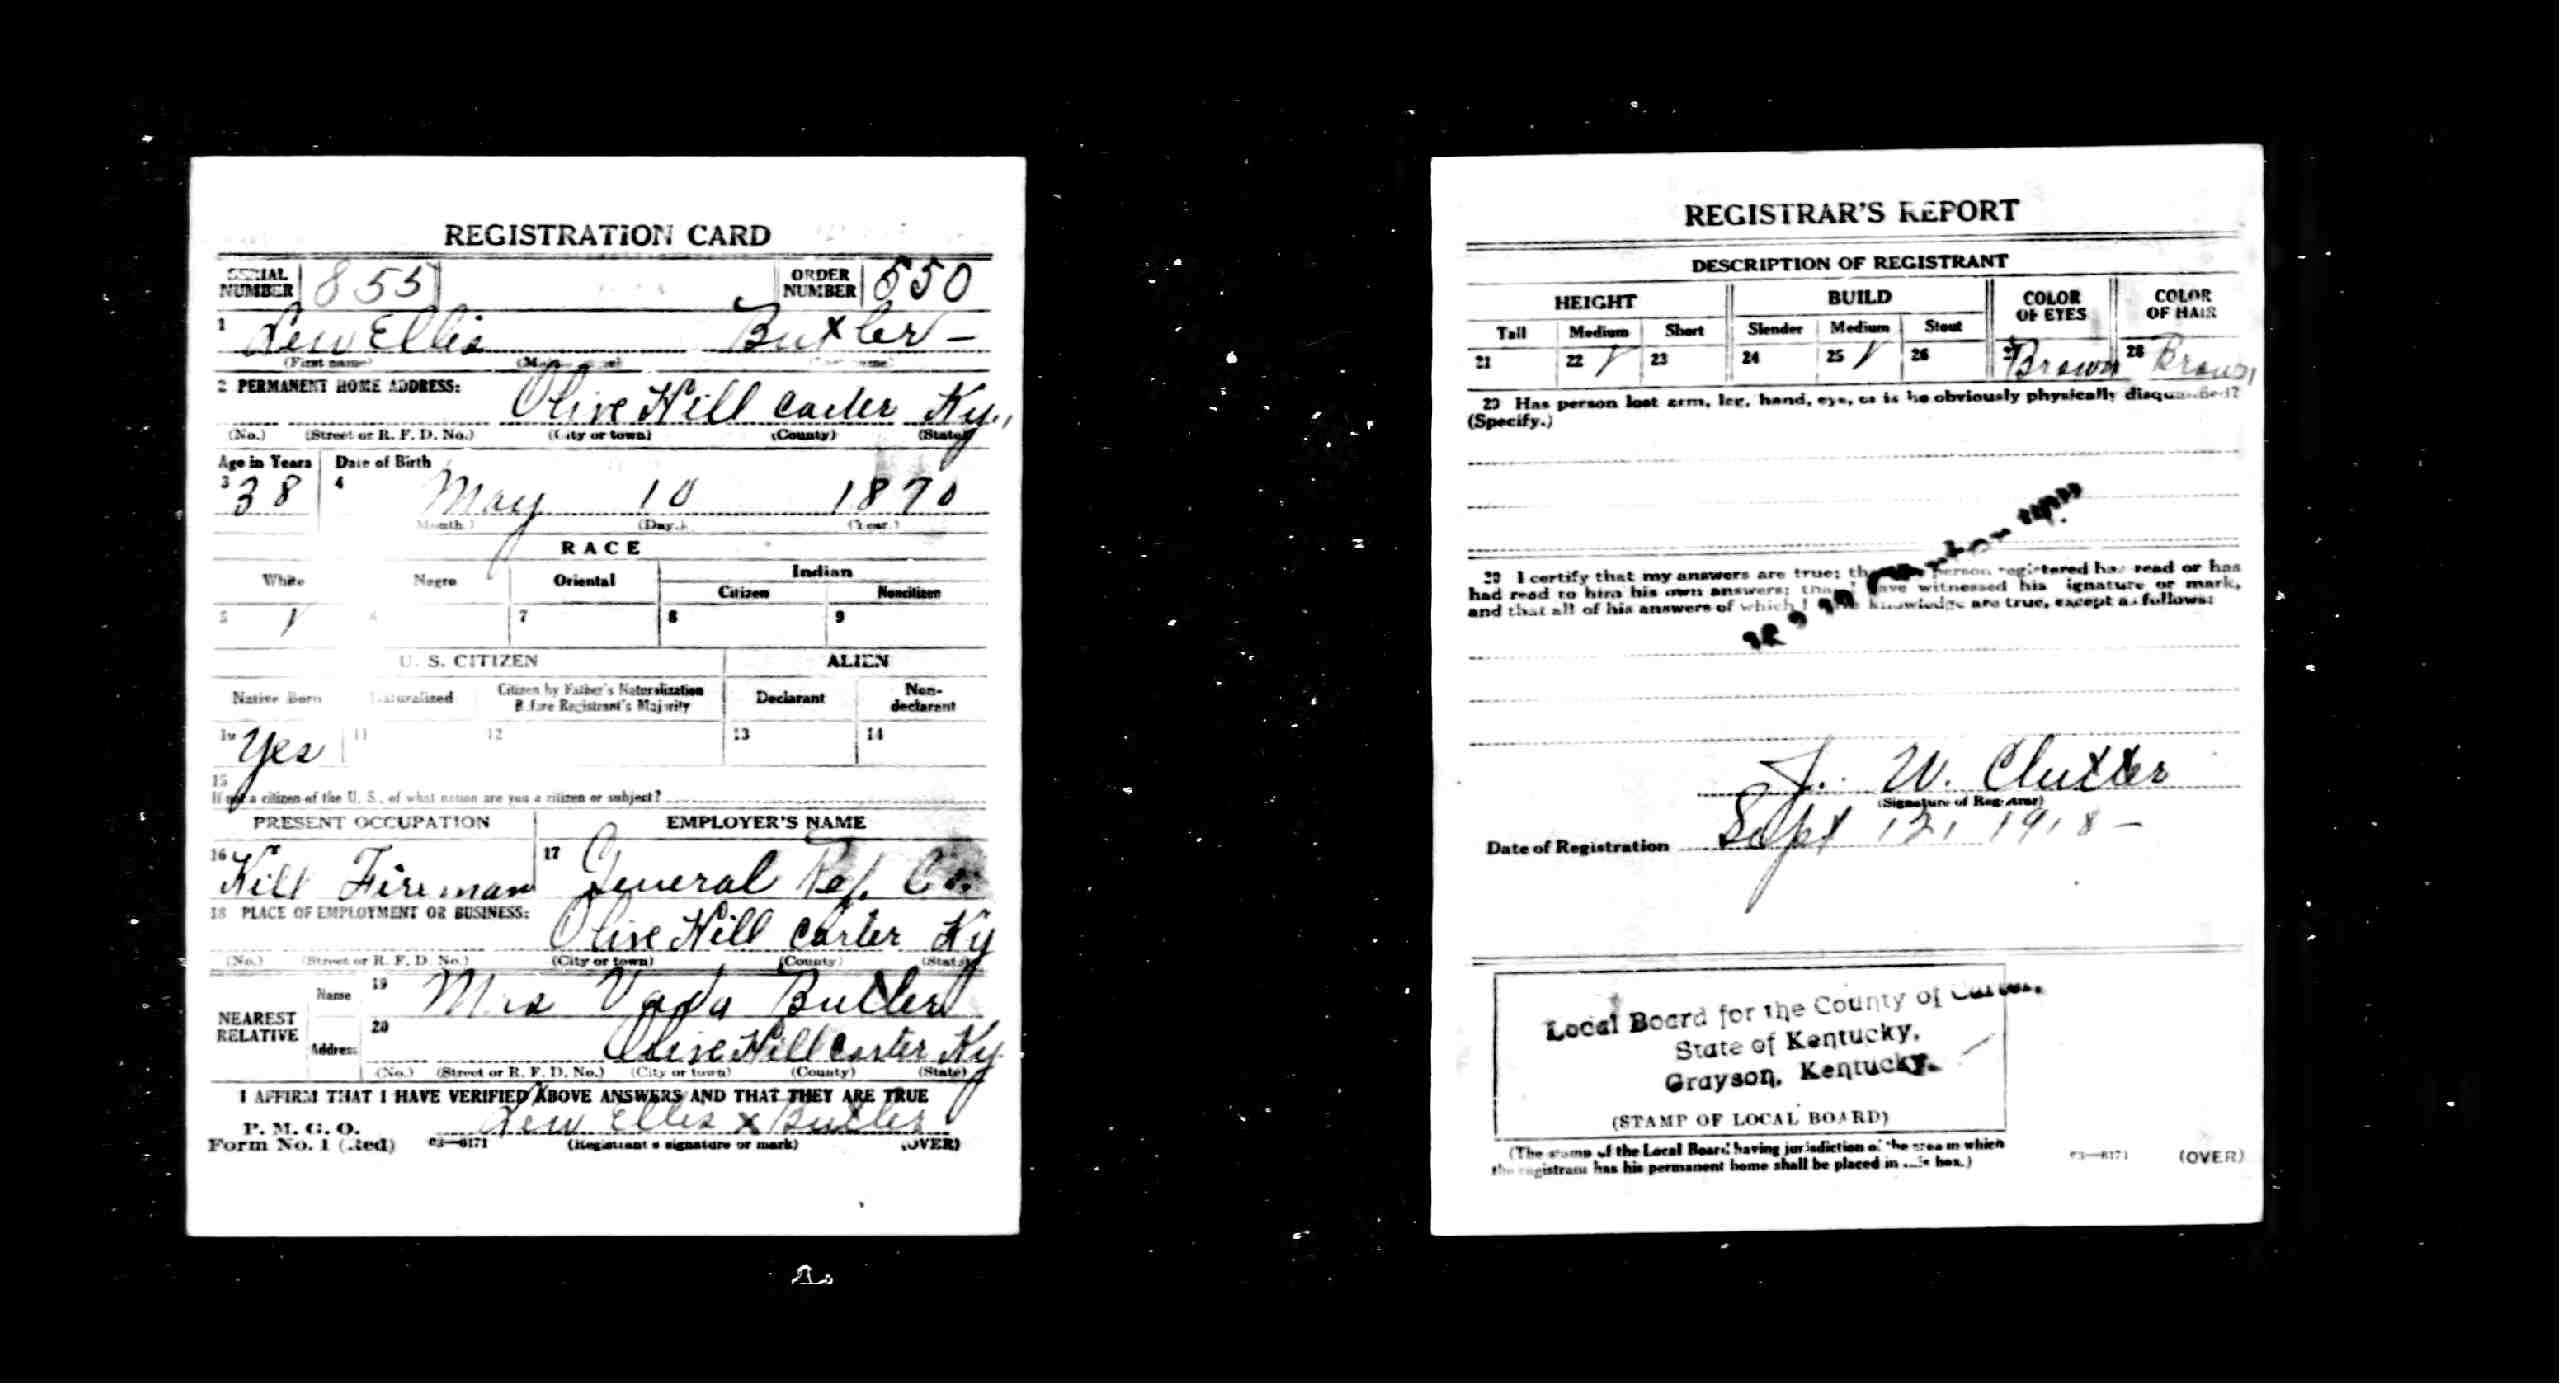 REGISTRATION CARD
SERIAL NUMBER 855 ORDER NUMBER 550
1 Lew Ellis Butler -
(First name)
2 PERMANENT HOME ADDRESS: Olive Hill Carter Ky.,
(No.) (Street or R. F. D. No.) (City or town) (County) (State)
Age in Years Date of Birth
3 38 4 May 10 18
(Month.) (Day.) (Year.)
RACE
White Negro Oriental Indian
Citizen Noncitizen
5 ✓ 6 7 8 9
U. S. CITIZEN ALIEN
Native Born Naturalized Citizen by Father's Naturalization Before Registrant's Majority Declarant Non-declarant
10 Yes 11 12 13 14
15
If not a citizen of the U. S., of what nation are you a citizen or subject?
PRESENT OCCUPATION EMPLOYER'S NAME
16 Kill Fireman 17 General Ref. Co.
18 PLACE OF EMPLOYMENT OR BUSINESS: Olive Hill Carter Ky
(No.) (Street or R. F. D. No.) (City or town) (County) (State)
NEAREST RELATIVE Name 19 Mrs Butler
Address 20 Olive Hill Carter Ky
(No.) (Street or R. F. D. No.) (City or town) (County) (State)
I AFFIRM THAT I HAVE VERIFIED ABOVE ANSWERS AND THAT THEY ARE TRUE
P. M. G. O.
Form No. 1 (Red) 03—6171 Lew Ellis x Butler
(Registrant's signature or mark) (OVER)
REGISTRAR'S REPORT
DESCRIPTION OF REGISTRANT
HEIGHT BUILD COLOR OF EYES COLOR OF HAIR
Tall Medium Short Slender Medium Stout
21 22 ✓ 23 24 25 ✓ 26 27 Brown 28 Brown
29 Has person lost arm, leg, hand, eye, or is he obviously physically disqualified?
(Specify.)
30 I certify that my answers are true; that the person registered has read or has
had read to him his own answers; that I have witnessed his signature or mark,
and that all of his answers of which I have knowledge are true, except as follows:
J. W. Clutter
(Signature of Registrar)
Date of Registration Sept 12, 1918 -
Local Board for the County of Carter,
State of Kentucky,
Grayson, Kentucky.
(STAMP OF LOCAL BOARD)
(The stamp of the Local Board having jurisdiction of the area in which
the registrant has his permanent home shall be placed in this box.)
03—6171 (OVER)